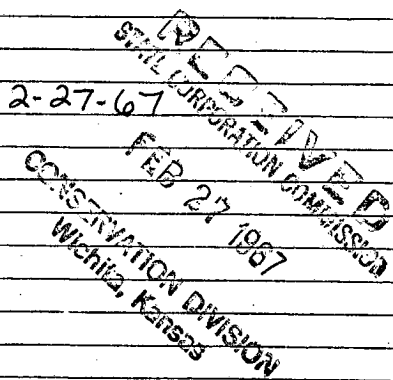 RECEIVED
STATE CORPORATION COMMISSION
2-27-67
FEB 27 1967
CONSERVATION DIVISION
Wichita, Kansas